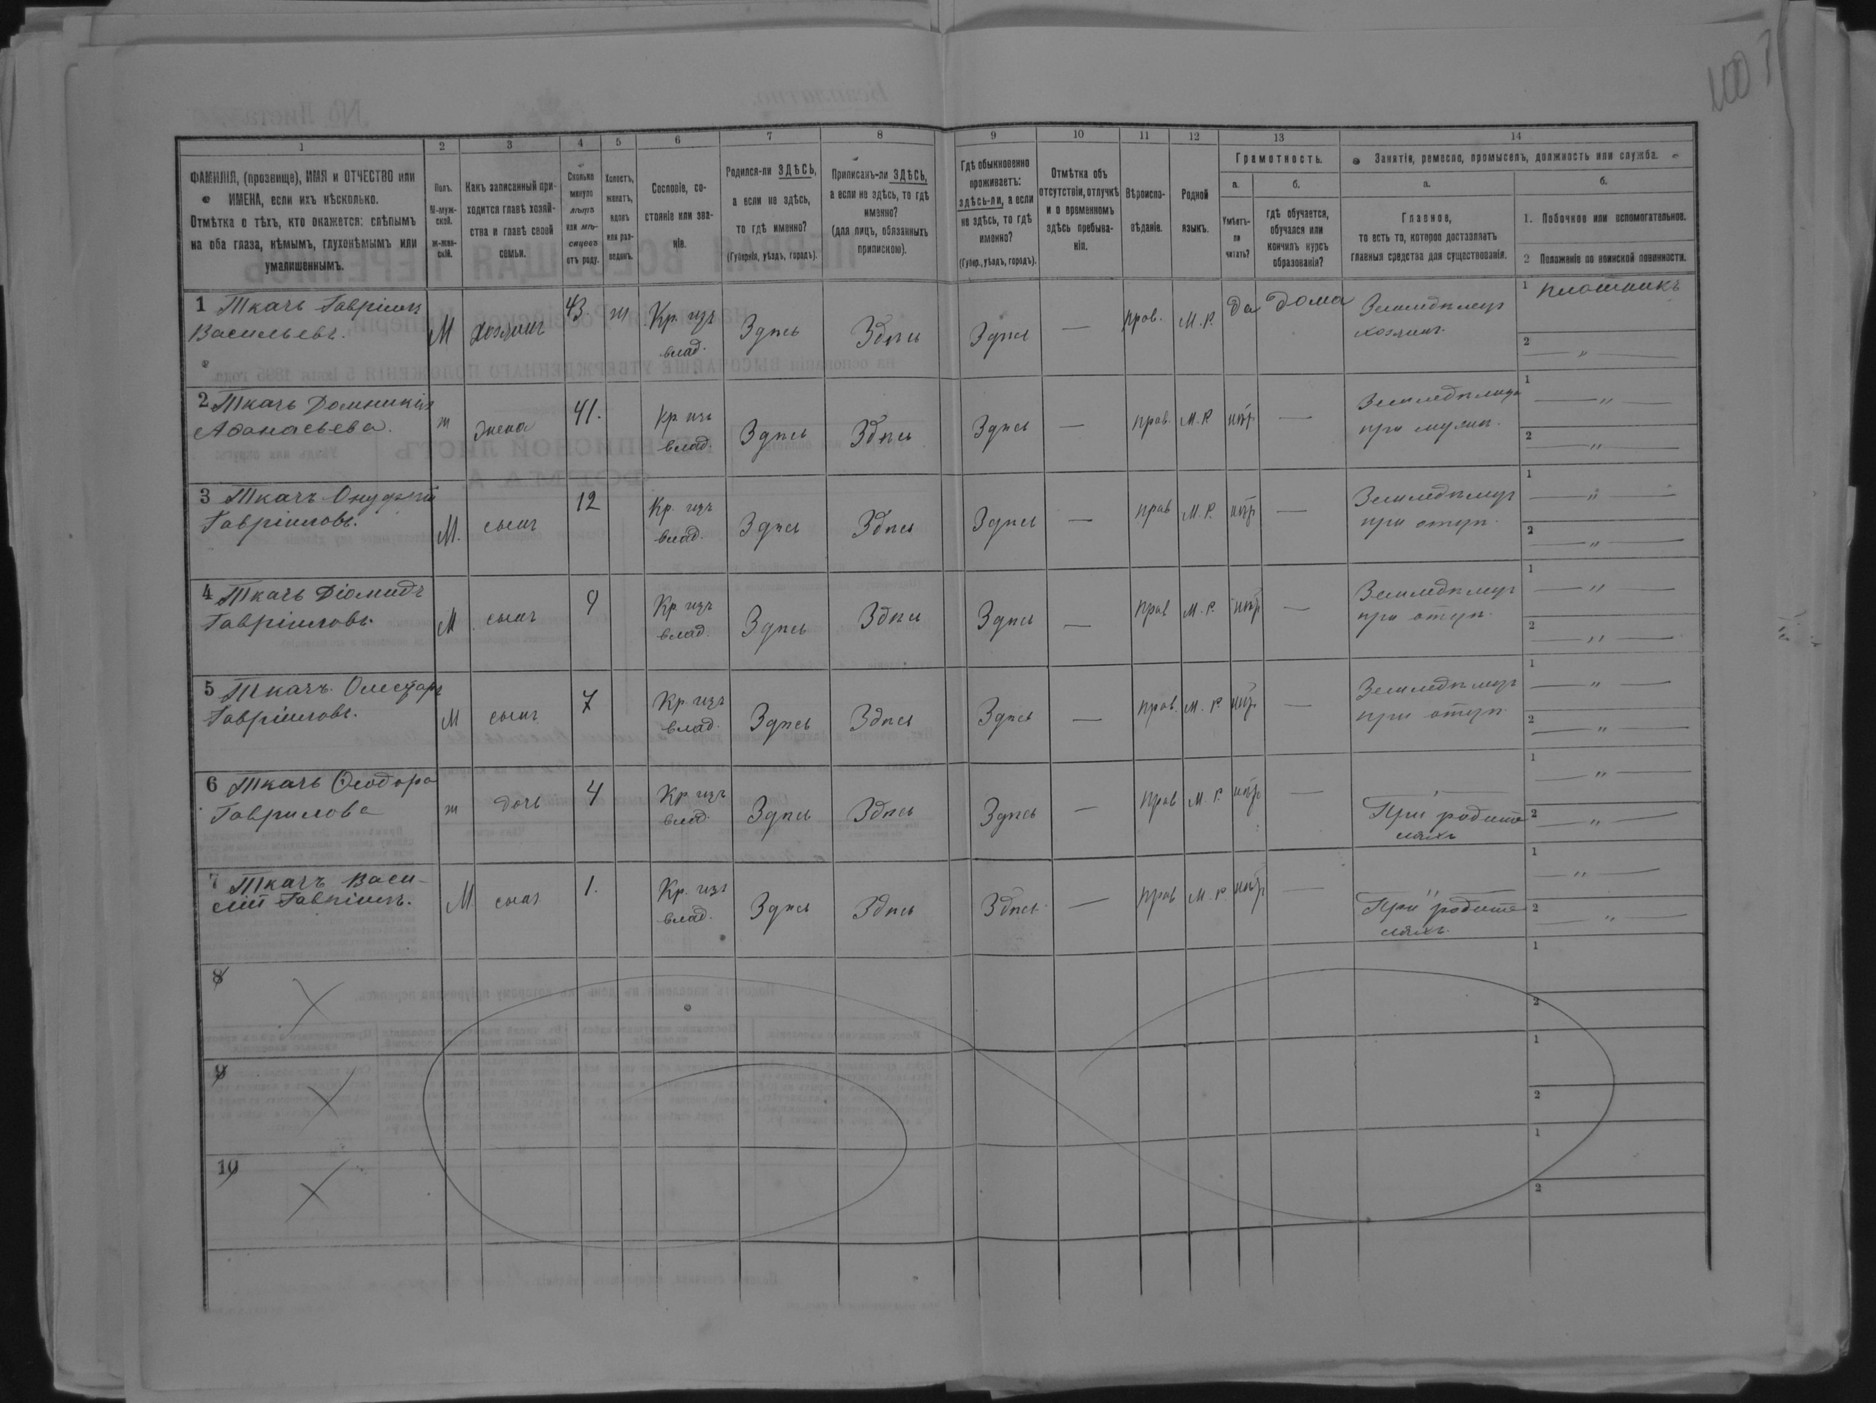 1 2 3 4 5 6 7 8 9 10 11 12 13 14
ФАМИЛІЯ, (прозвище), ИМЯ и ОТЧЕСТВО или ИМЕНА, если ихъ нѣсколько.
Отмѣтка о тѣхъ, кто окажется: слѣпымъ на оба глаза, нѣмымъ, глухонѣмымъ или умалишеннымъ.
Полъ. М-муж-ской. ж-жен-скій.
Какъ записанный при-ходится главѣ хозяй-ства и главѣ своей семьи.
Сколько минуло лѣтъ или мѣ-сяцевъ отъ роду.
Холостъ, женатъ, вдовъ или раз-веденъ.
Сословіе, со-стояніе или зва-ніе.
Родился-ли ЗДѢСЬ, а если не здѣсь, то гдѣ именно? (Губернія, уѣздъ, городъ).
Приписанъ-ли ЗДѢСЬ, а если не здѣсь, то гдѣ именно? (для лицъ, обязанныхъ припискою).
Гдѣ обыкновенно проживаетъ: здѣсь-ли, а если не здѣсь, то гдѣ именно? (Губер., уѣздъ, городъ).
Отмѣтка объ отсутствіи, отлучкѣ и о временномъ здѣсь пребыва-ніи.
Вѣроиспо-вѣданіе.
Родной языкъ.
Грамотность.
а. Умѣетъ-ли читать?
б. гдѣ обучается, обучался или кончилъ курсъ образованія?
Занятіе, ремесло, промыселъ, должность или служба.
а. Главное, то есть то, которое доставляетъ главныя средства для существованія.
б. 1. Побочное или вспомогательное.
2 Положеніе по воинской повинности.
1 Ткачъ Гавріилъ Васильевъ. М хозяинъ 43 ж Кр. изъ влад. Здѣсь Здѣсь Здѣсь — прав. М.Р. да дома Земледѣлецъ хозяинъ. 1 плотникъ 2 — „ —
2 Ткачъ Домникія Аѳанасьева. ж жена 41. Кр. изъ влад. Здѣсь Здѣсь Здѣсь — прав. М.Р. нѣтъ — при мужѣ. 1 — „ — 2 — „ —
3 Ткачъ Гавріиловъ. М. сынъ 12 Кр. изъ влад. Здѣсь Здѣсь Здѣсь — прав М.Р. нѣтъ — Земледѣлецъ при отцѣ. 1 — „ — 2 — „ —
4 Ткачъ Діомидъ Гавріиловъ. М сынъ 9 Кр. изъ влад. Здѣсь Здѣсь Здѣсь — прав М.Р. нѣтъ — Земледѣлецъ при отцѣ. 1 — „ — 2 — „ —
5 Ткачъ Гавріиловъ. М сынъ 7 Кр. изъ влад Здѣсь Здѣсь Здѣсь — прав. М.Р. нѣтъ — Земледѣлецъ при отцѣ. 1 — „ — 2 — „ —
6 Ткачъ Ѳеодора Гаврилова ж дочь 4 Кр. изъ влад. Здѣсь Здѣсь Здѣсь — прав М.Р. нѣтъ — При родите ляхъ 1 — „ — 2 — „ —
7 Ткачъ Васи-лій Гавріилъ. М сынъ 1. Кр. изъ влад. Здѣсь Здѣсь Здѣсь — прав М.Р. нѣтъ — — „ — При родите ляхъ. 1 — „ — 2 — „ —
8 1 2
9 1 2
10 1 2